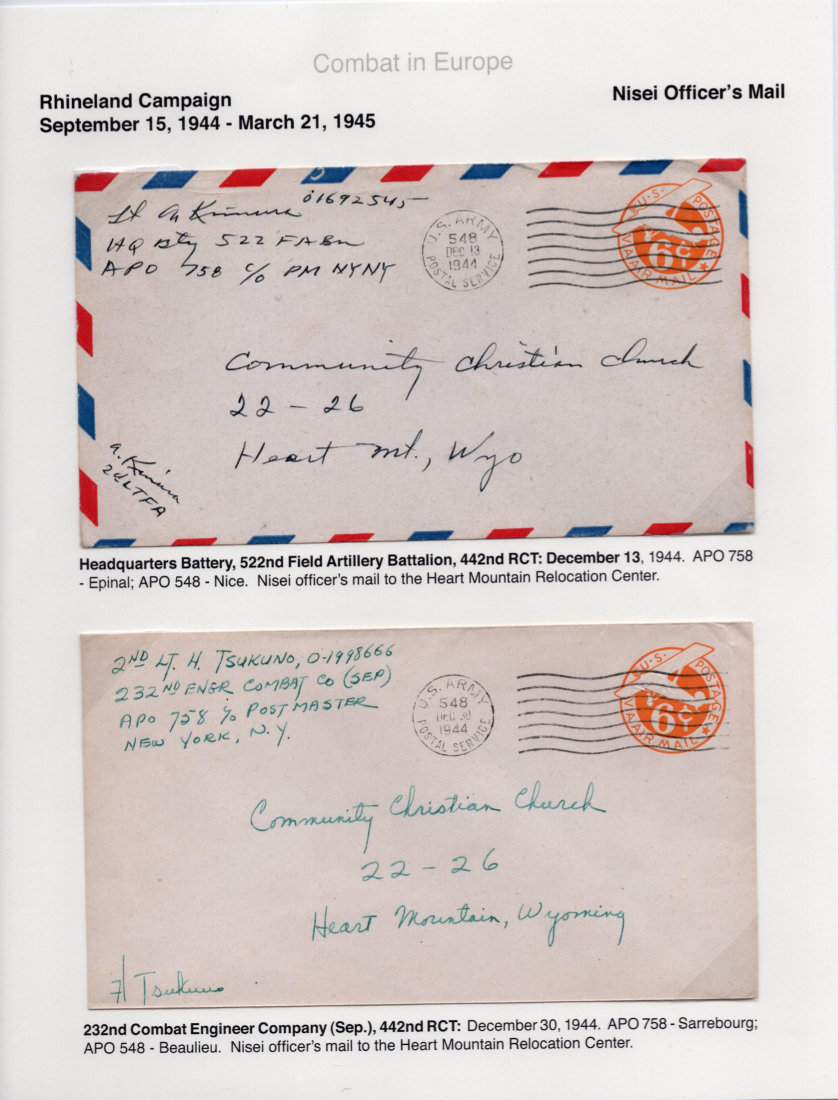 Combat in Europe
Rhineland Campaign
September 15, 1944 - March 21, 1945
Nisei Officer's Mail
Lt A Kimura 01692545
HQ Bty 522 FA Bn
APO 758 c/o PM NYNY
U.S. ARMY
548
DEC 13
1944
POSTAL SERVICE
U.S. POSTAGE
6¢
VIA AIR MAIL
Community Christian Church
22 - 26
Heart Mt., Wyo
A. Kimura
2d LT FA
Headquarters Battery, 522nd Field Artillery Battalion, 442nd RCT: December 13, 1944. APO 758
- Epinal; APO 548 - Nice. Nisei officer's mail to the Heart Mountain Relocation Center.
2ND LT. H. TSUKUNO, O-1998666
232ND ENGR COMBAT CO (SEP)
APO 758 c/o POSTMASTER
NEW YORK, N.Y.
U.S. ARMY
548
DEC 30
1944
POSTAL SERVICE
U.S. POSTAGE
6¢
VIA AIR MAIL
Community Christian Church
22 - 26
Heart Mountain, Wyoming
H Tsukuno
232nd Combat Engineer Company (Sep.), 442nd RCT: December 30, 1944. APO 758 - Sarrebourg;
APO 548 - Beaulieu. Nisei officer's mail to the Heart Mountain Relocation Center.